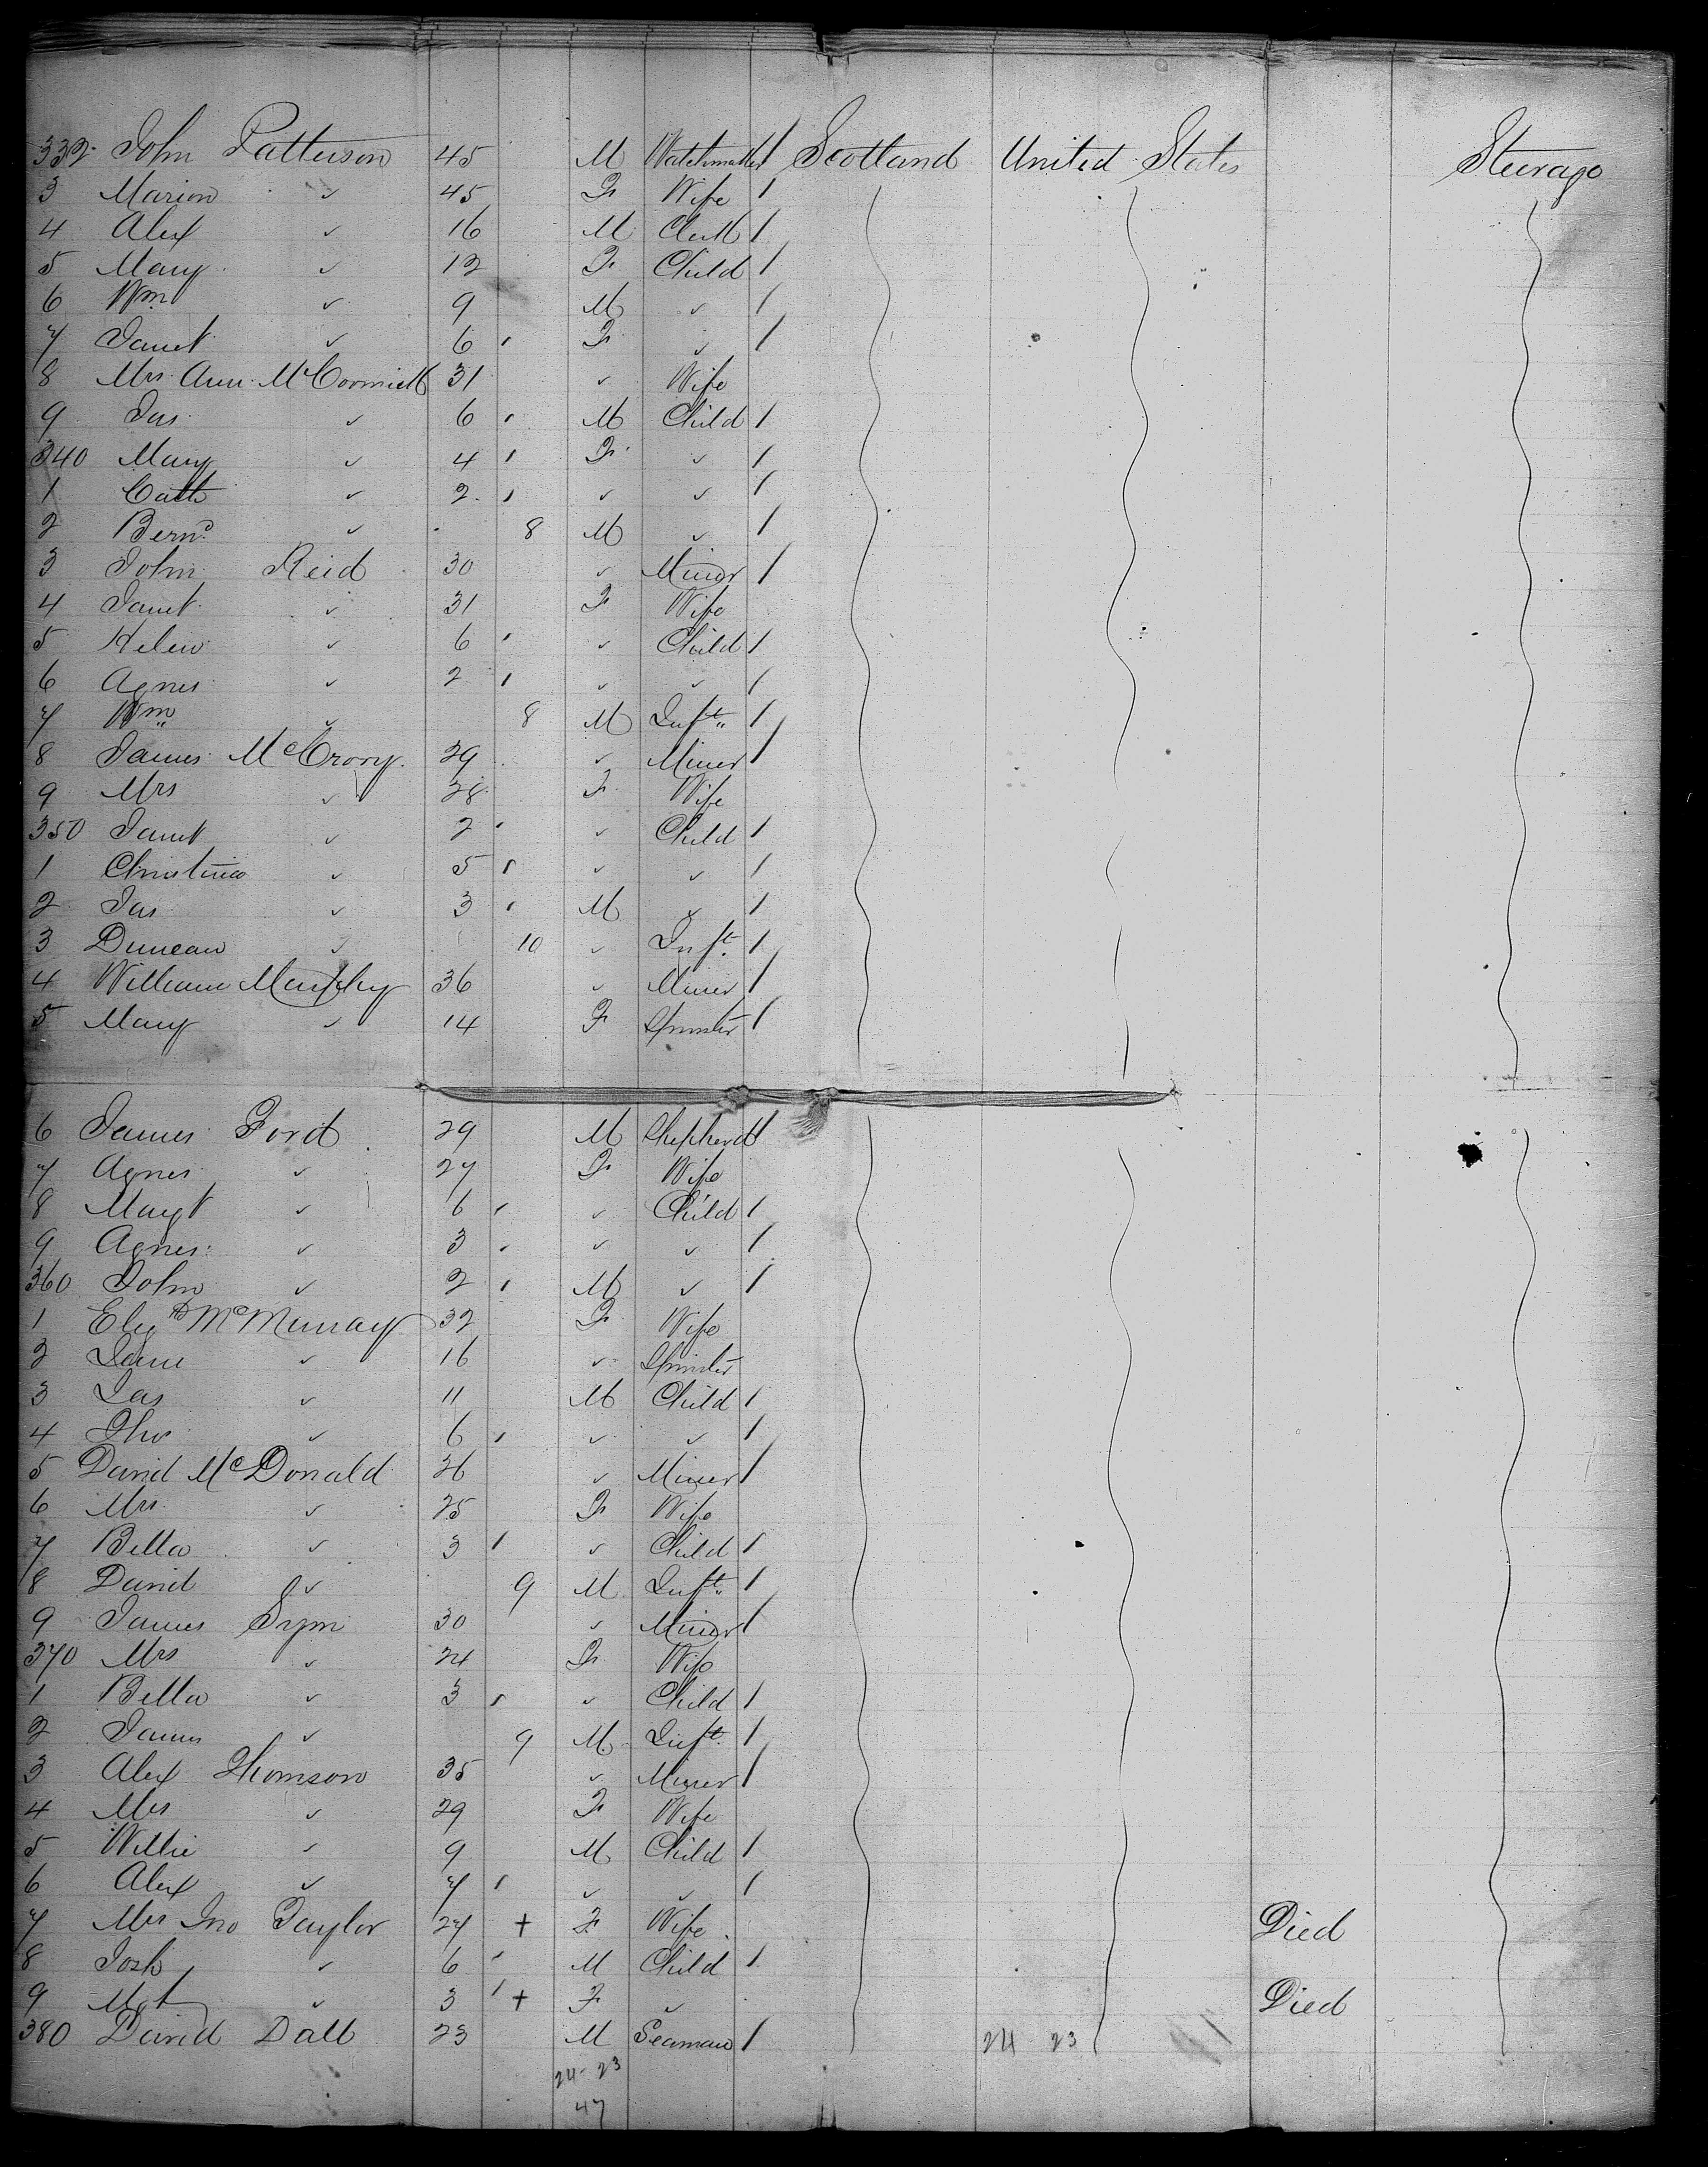 332 John Patterson 45 M Watchmaker / Scotland United States Steerage
3 Marion ✓ 45 F Wife /
4 Alex ✓ 16 M Clerk /
5 Mary ✓ 12 F Child /
6 Wm ✓ 9 M ✓ /
7 Janet ✓ 6 ' F ✓ /
8 Mrs Ann McCormick 31 ✓ Wife
9 Jas ✓ 6 ' M Child /
340 Mary ✓ 4 ' F ✓ /
1 Cath ✓ 2 ' ✓ ✓ /
2 Bernd ✓ 8 M ✓ /
3 John Reid 30 ✓ Miner /
4 Janet ✓ 31 F Wife
5 Helen ✓ 6 ' ✓ Child /
6 Agnes ✓ 2 ' ✓ ✓ /
7 Wm ✓ 8 M Inft /
8 James McCrory 29 ✓ Miner /
9 Mrs ✓ 28 F Wife
350 Janet ✓ 2 ' ✓ Child /
1 Christina ✓ 5 ' ✓ ✓ /
2 Jas ✓ 3 ' M ✓ /
3 Duncan ✓ 10 ✓ Inft /
4 William Murphy 36 ✓ Miner /
5 Mary ✓ 14 F Spinster /
6 James Ford 29 M Shepherd /
7 Agnes ✓ 27 F Wife
8 Margt ✓ 6 ' ✓ Child /
9 Agnes ✓ 3 ' ✓ ✓ /
360 John ✓ 2 ' M ✓ /
1 Elizth McMurray 32 F Wife
2 Jane ✓ 16 ✓ Spinster
3 Jas ✓ 11 M Child /
4 Thos ✓ 6 ' ✓ ✓ /
5 David McDonald 26 ✓ Miner /
6 Mrs ✓ 25 F Wife
7 Bella ✓ 3 ' ✓ Child /
8 David ✓ 9 M Inft /
9 James Sym 30 ✓ Miner /
370 Mrs ✓ 24 F Wife
1 Bella ✓ 3 ' ✓ Child /
2 James ✓ 9 M Inft /
3 Alex Thomson 35 ✓ Miner /
4 Mrs ✓ 29 F Wife
5 Willie ✓ 9 M Child /
6 Alex ✓ 7 ' ✓ ✓ /
7 Mrs Jno Taylor 27 + F Wife Died
8 Josh ✓ 6 ' M Child /
9 Mgt ✓ 3 ' + F ✓ Died
380 David Dall 23 M Seaman / 24 23
24-23
47